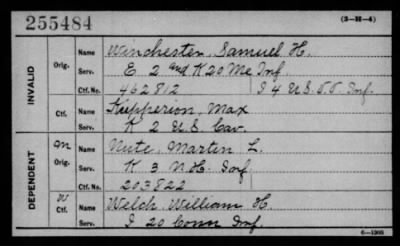 255484 (3-H-4)
INVALID
Orig. Name Winchester, Samuel H.
Serv. E 2 and K 20 Me Inf
Ctf. No. 462812 I 4 U.S. Inf.
Ctf. Name Kupperion, Max
Serv. K 2 U.S. Cav.
DEPENDENT
M Orig. Name Nute, Martin L.
Serv. K 3 N.H. Inf
Ctf. No. 203822
W Ctf. Name Welch, William H.
Serv. I 20 Conn Inf.
6-1305